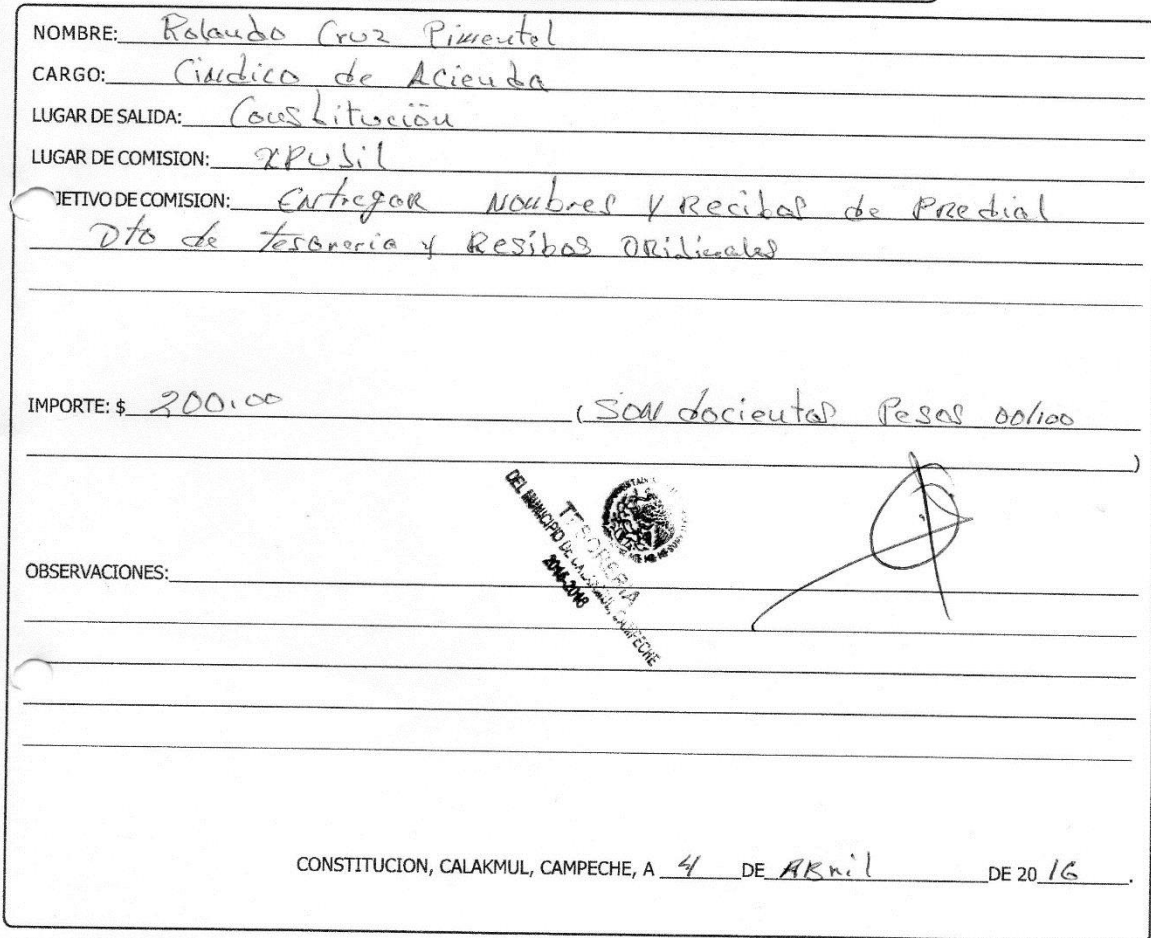 NOMBRE: Rolando Cruz Pimentel
CARGO: Cindico de Acienda
LUGAR DE SALIDA: Constitución
LUGAR DE COMISION: XPUJil
JETIVO DE COMISION: Entregar Nombres y Recibos de Predial
Dto de Tesoreria y Resibos ORiJinales
IMPORTE: $ 200.00 (SON docientos Pesos 00/100
)
TESORERIA
DEL MUNICIPIO DE CALAKMUL, CAMPECHE
2015-2018
OBSERVACIONES:
CONSTITUCION, CALAKMUL, CAMPECHE, A 4 DE ABril DE 20 16.